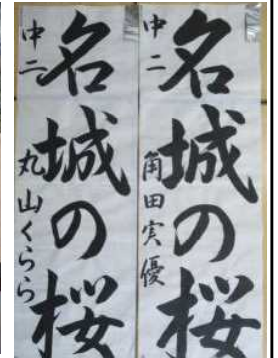 名城の桜
中二
角田実優
名城の桜
中二
丸山くらら